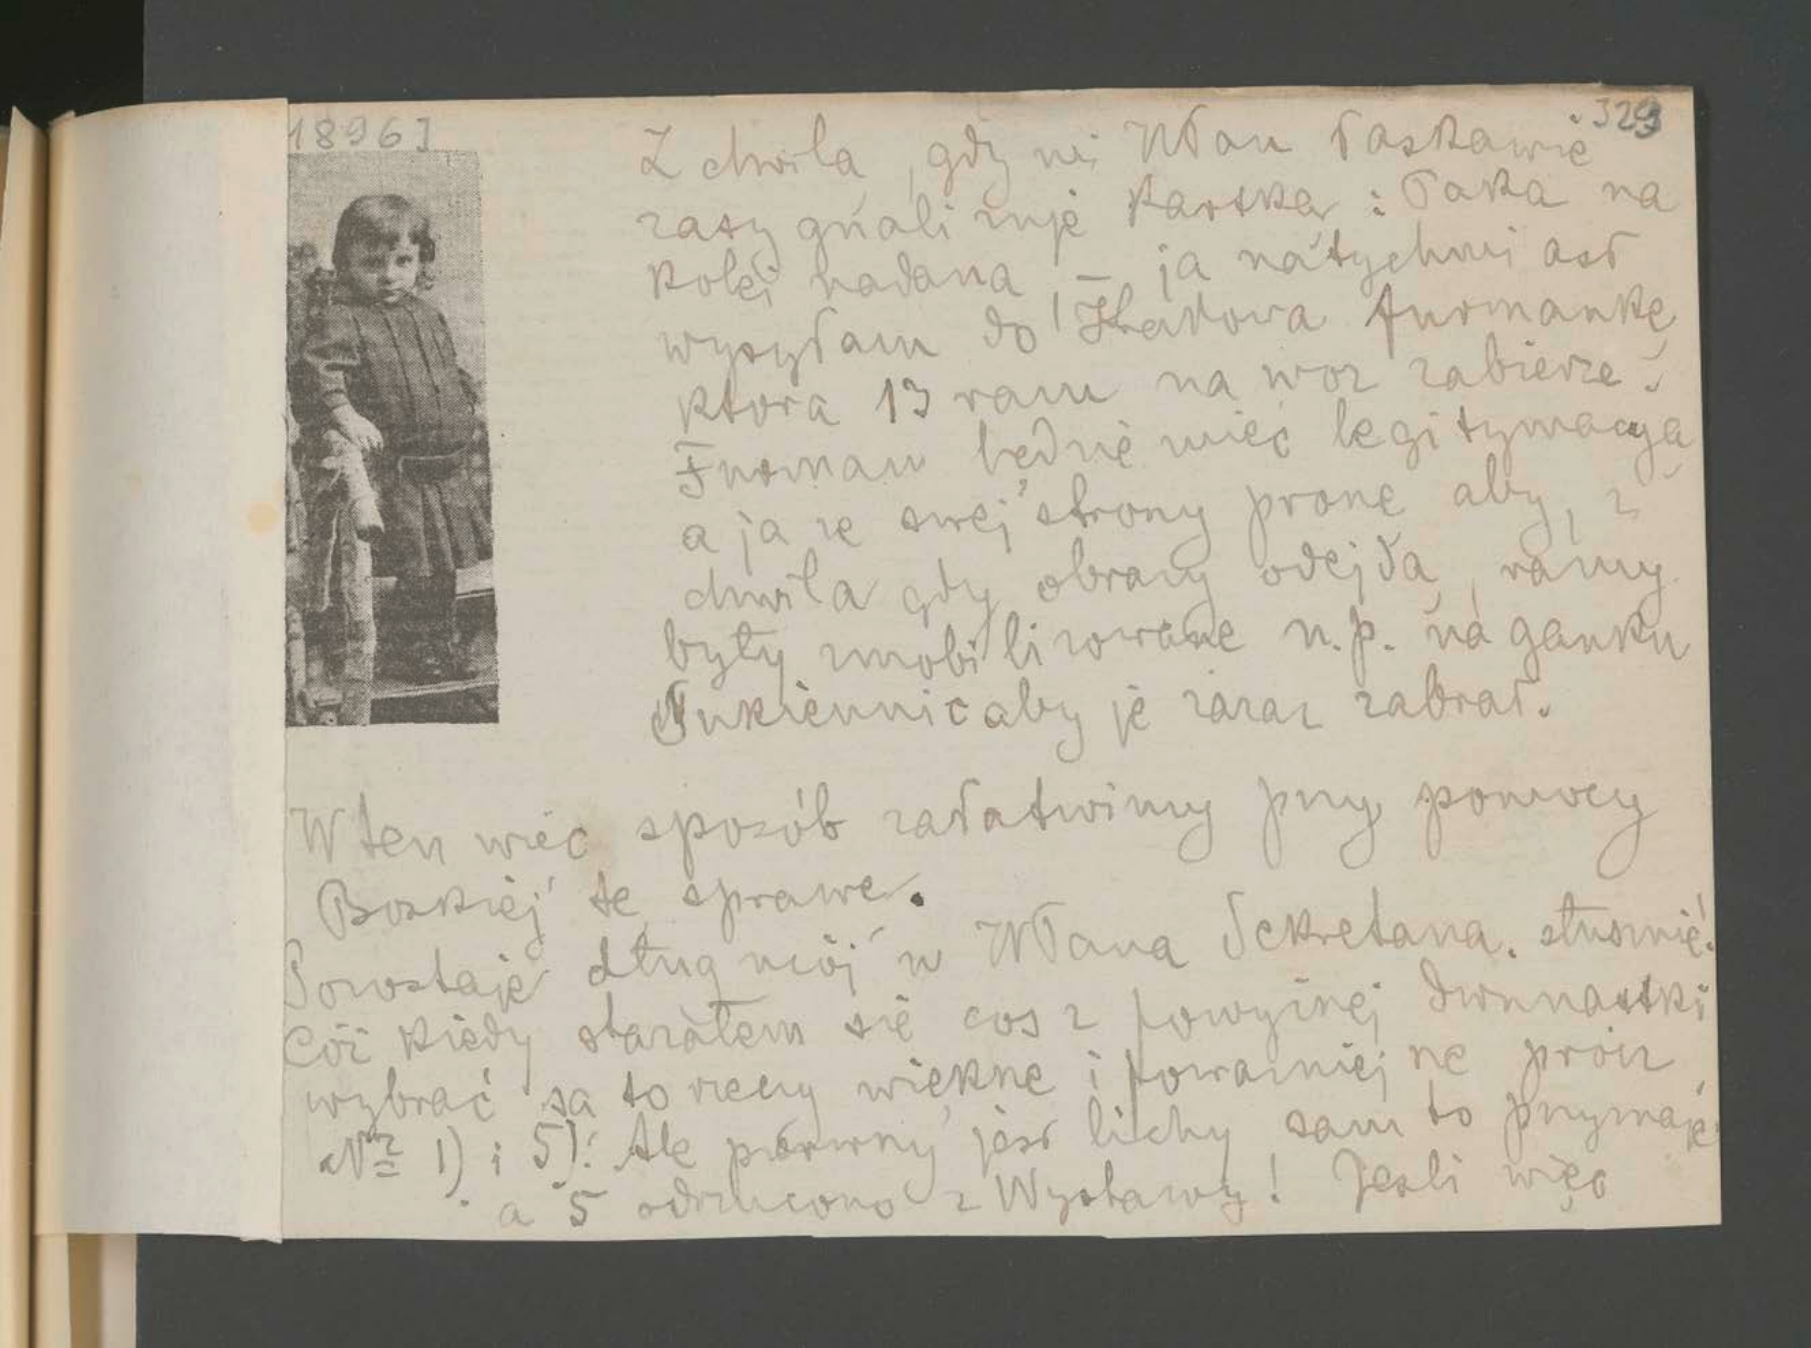 1896]
329
Z chwilą, gdy mi WPan łaskawie
zasygnalizuje kartką: Paka na
kolej nadana, – ja natychmiast
wysyłam do Krakowa furmankę
która 13 ram na wóz zabierze.
Furman będzie mieć legitymacyą
a ja ze swej strony proszę aby, z
chwilą gdy obrazy odejdą, ramy
były zmobilizowane n.p. na ganku
Sukiennic aby je zaraz zabrał.
W ten więc sposób załatwimy przy pomocy
Boskiej tę sprawę.
Pozostaje dług mój u WPana Sekretarza. słusznie!
Cóż kiedy starałem się coś z powyższej dwunastki
wybrać są to rzeczy większe i poważniejsze prócz
Nr 1) i 5)! Ale pierwszy jest lichy sam to przyznaję
a 5 odrzucono z Wystawy! Jeśli więc